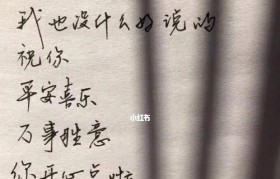 我也没什么好说的
祝你
平安喜乐
万事胜意
小红书